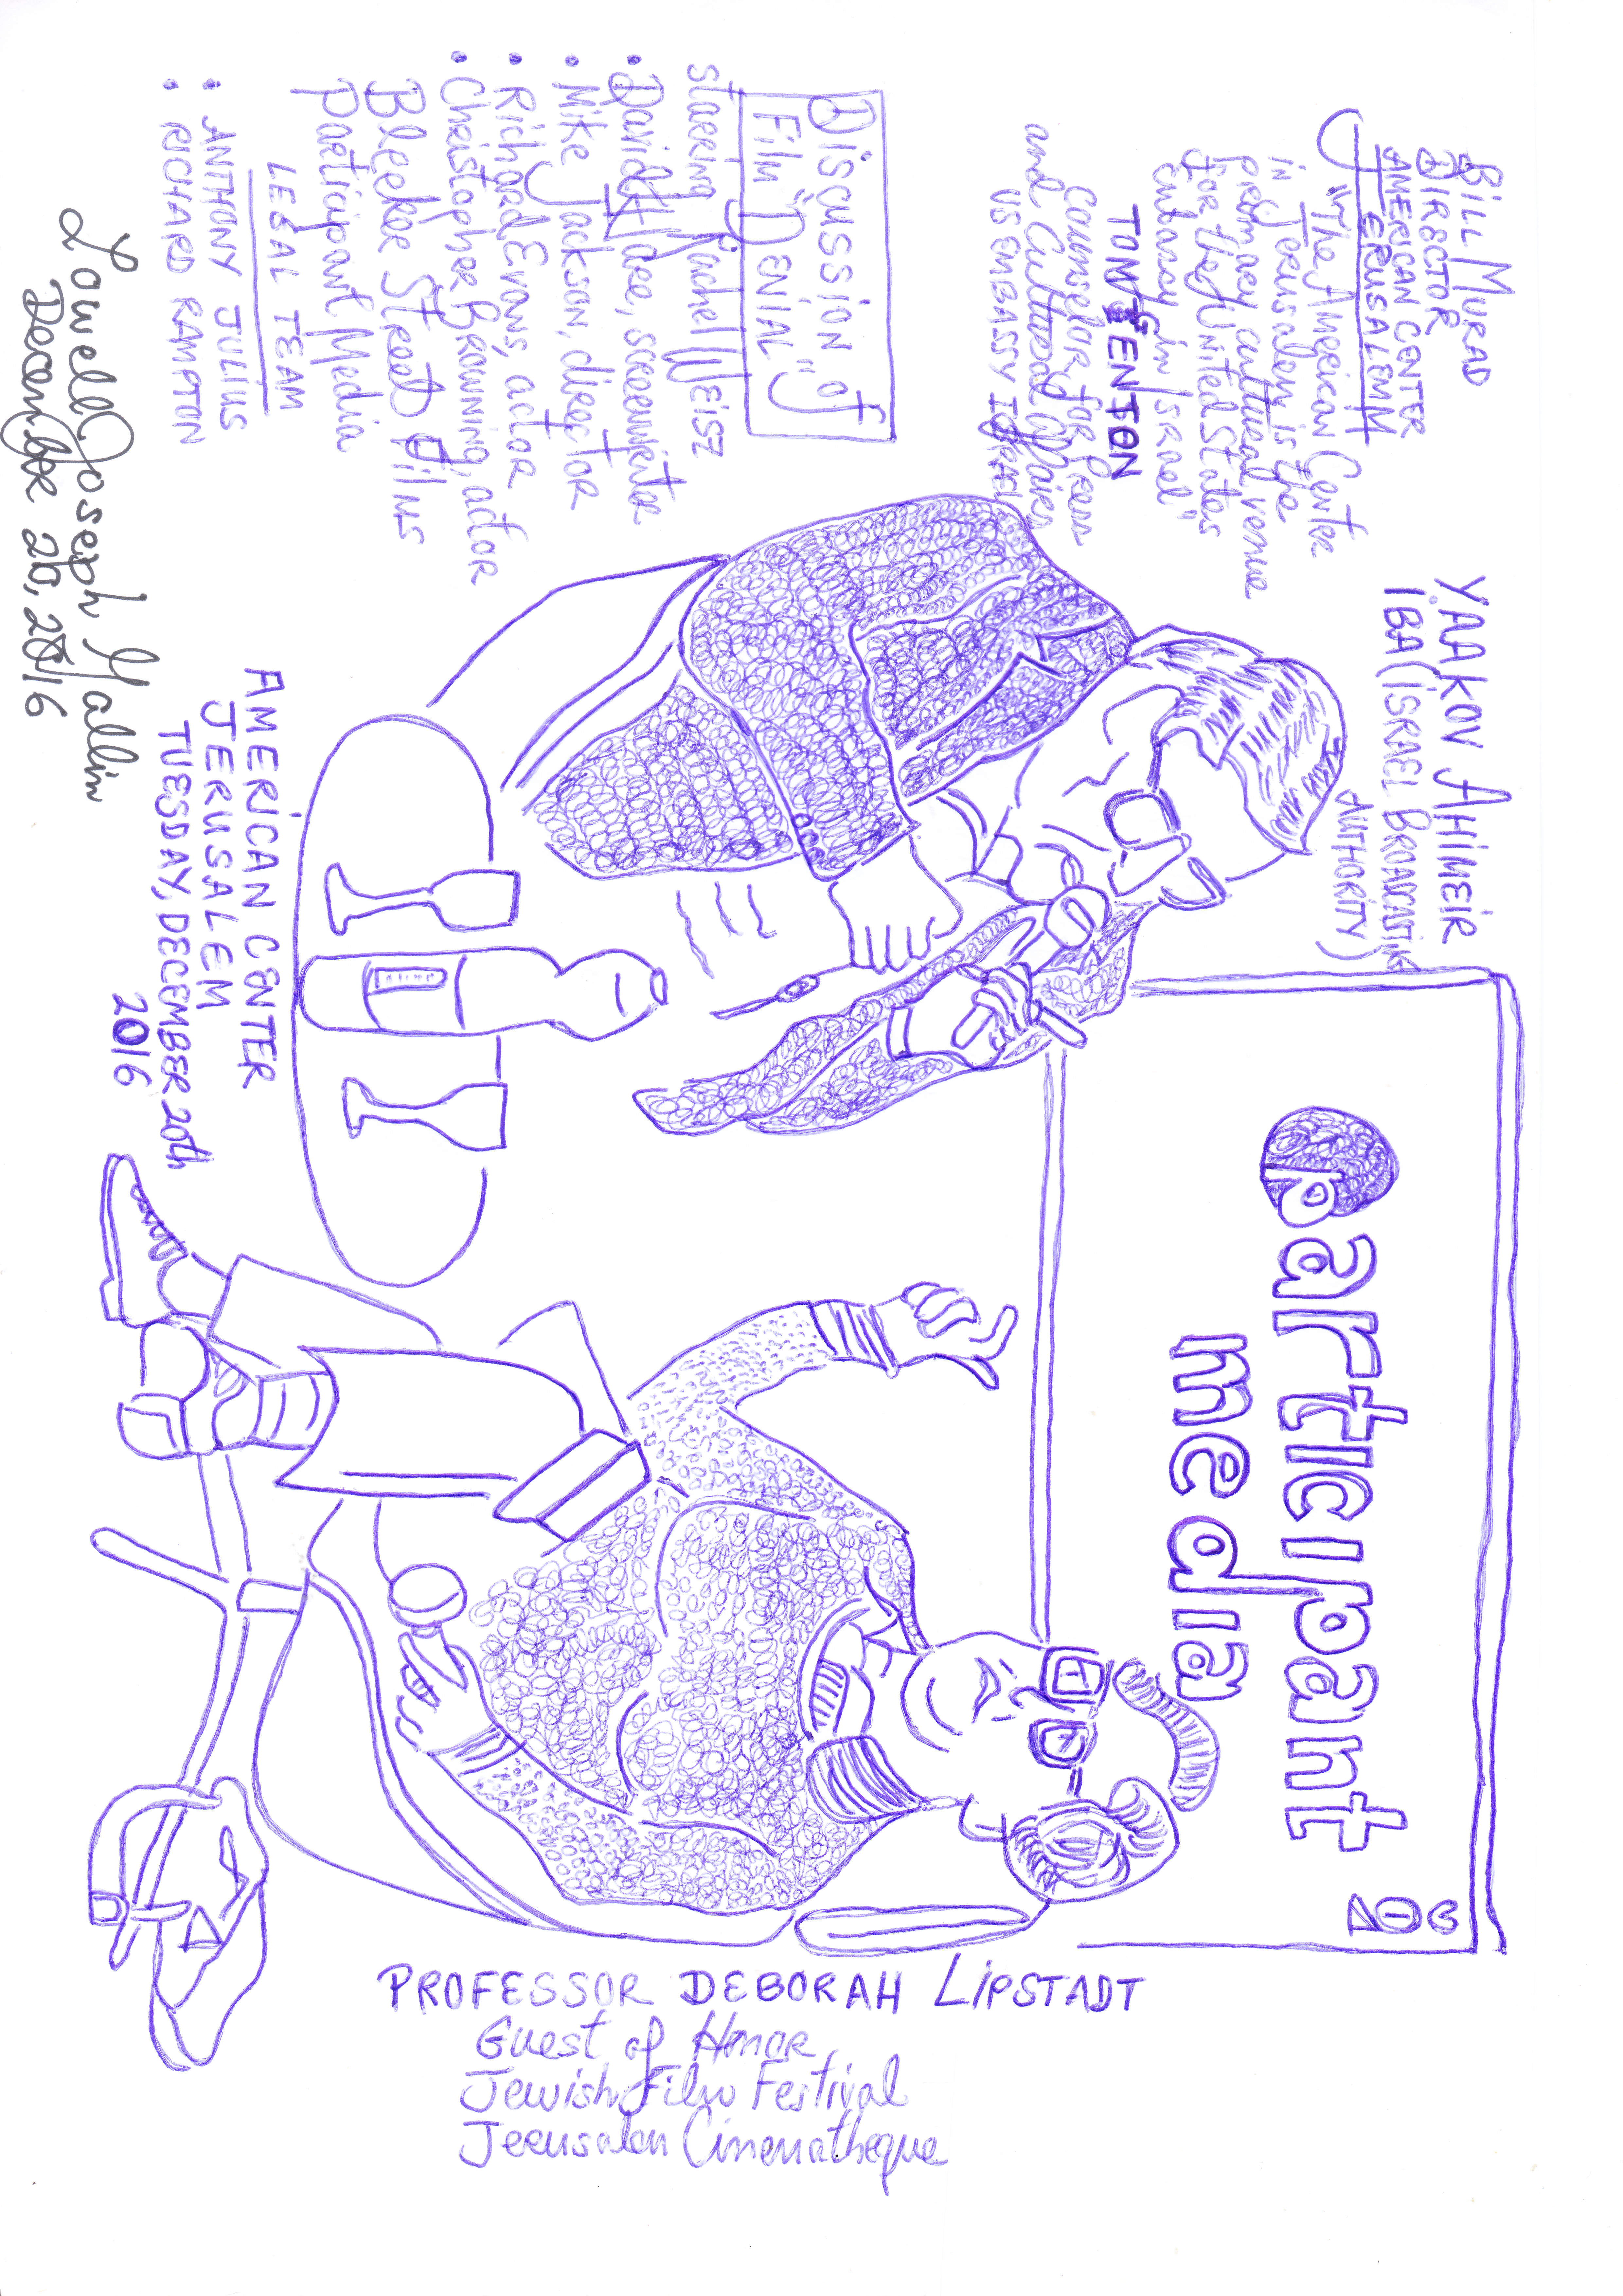 BILL MURAD
DIRECTOR
AMERICAN CENTER
JERUSALEM
"The American Center
in Jerusalem is the
primary cultural venue
for the United States
Embassy in Israel"
TOM FENTON
Counselor for Press
and Cultural Affairs
US EMBASSY ISRAEL
DISCUSSION of
Film "DENIAL"
starring Rachel WEISZ
• David Hare, screenwriter
• Mike Jackson, director
• Richard Evans, actor
• Christopher Browning, actor
Bleeker Street Films
Participant Media
LEGAL TEAM
• ANTHONY JULIUS
• RICHARD RAMPTON
Lowell Joseph Gallin
December 20, 2016
YAAKOV AHIMEIR
IBA (ISRAEL BROADCASTING
AUTHORITY)
participant
media
AMERICAN CENTER
JERUSALEM
TUESDAY, DECEMBER 20th
2016
PROFESSOR DEBORAH LIPSTADT
Guest of Honor
Jewish Film Festival
Jerusalem Cinematheque